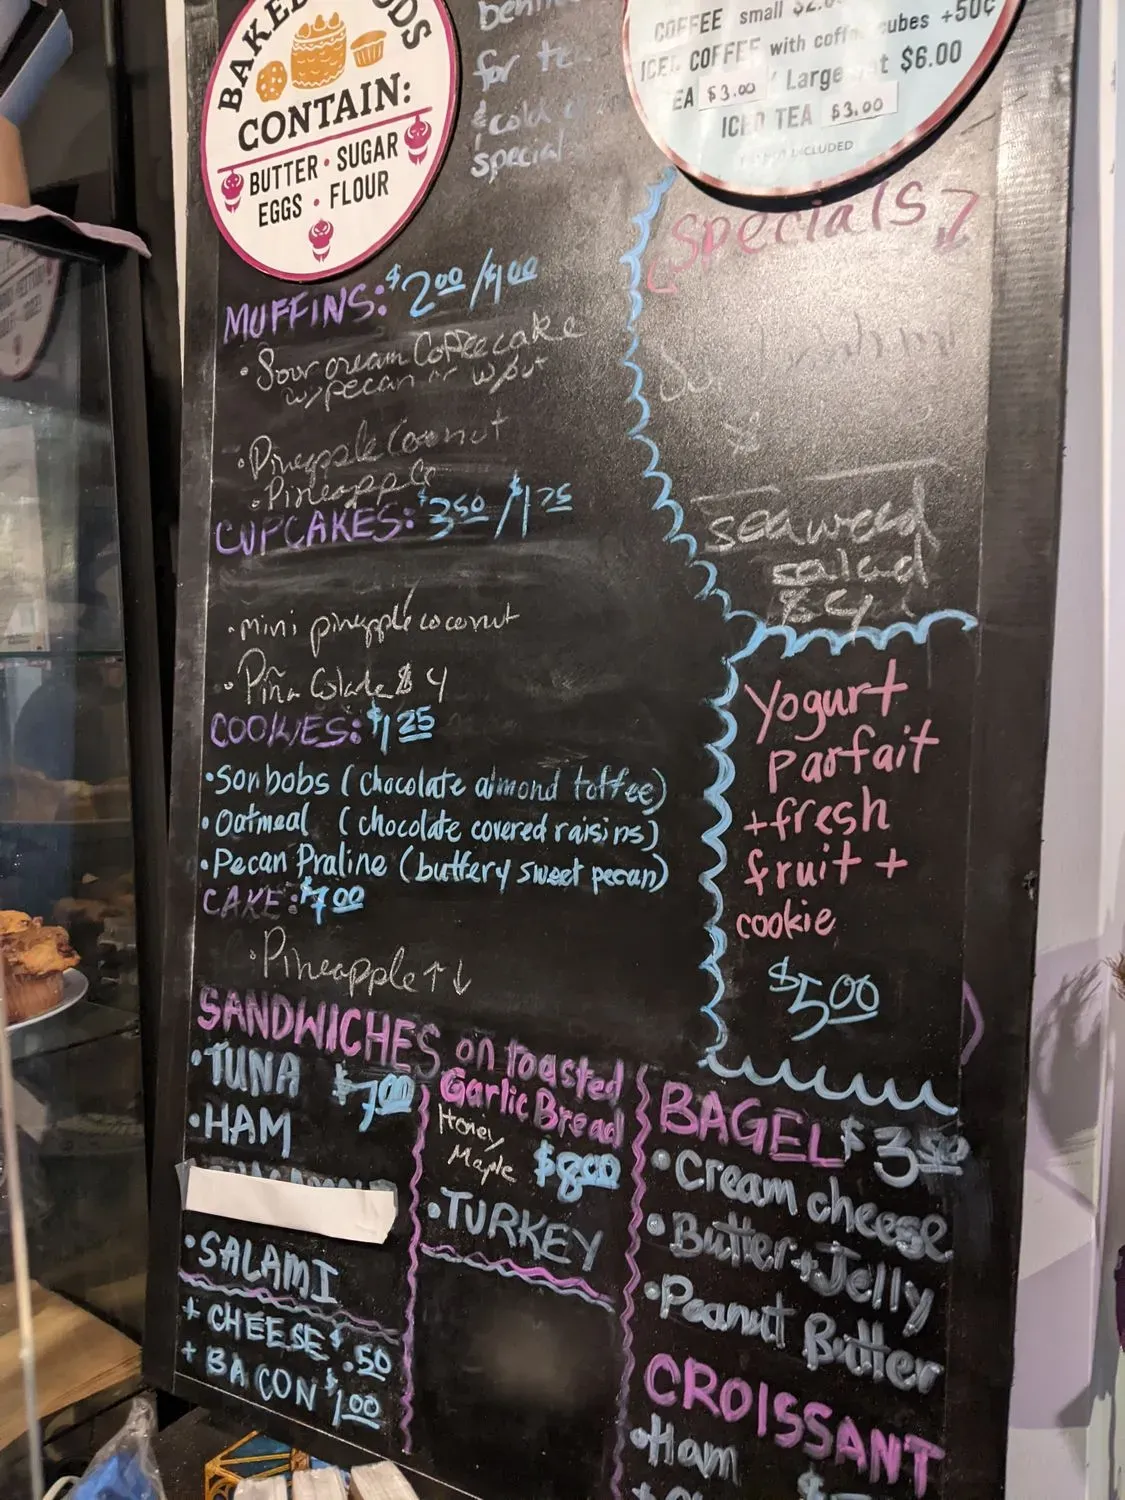 BAKED GOODS
CONTAIN:
BUTTER · SUGAR
EGGS · FLOUR
for
& cold
special
COFFEE small
ICED COFFEE with coffee cubes +50¢
Large $6.00
$3.00
ICED TEA $3.00
INCLUDED
Specials
seaweed
salad
$4
MUFFINS: $2.00/$1.00
· Sour cream Coffeecake
w/pecan or w/out
· Pineapple Coconut
· Pineapple
CUPCAKES: $3.50/$1.75
· mini pineapple coconut
· Piña Colada $4
COOKIES: $1.25
· Sonbobs (chocolate almond toffee)
· Oatmeal (chocolate covered raisins)
· Pecan Praline (buttery sweet pecan)
CAKE: $7.00
· Pineapple ↑↓
Yogurt
Parfait
+ fresh
fruit +
cookie
$5.00
SANDWICHES on toasted
Garlic Bread
· TUNA $7.00
· HAM
· SALAMI
+ CHEESE $.50
+ BACON $1.00
Honey
Maple $8.00
· TURKEY
BAGEL $3.50
· Cream cheese
· Butter + Jelly
· Peanut Butter
CROISSANT
· Ham